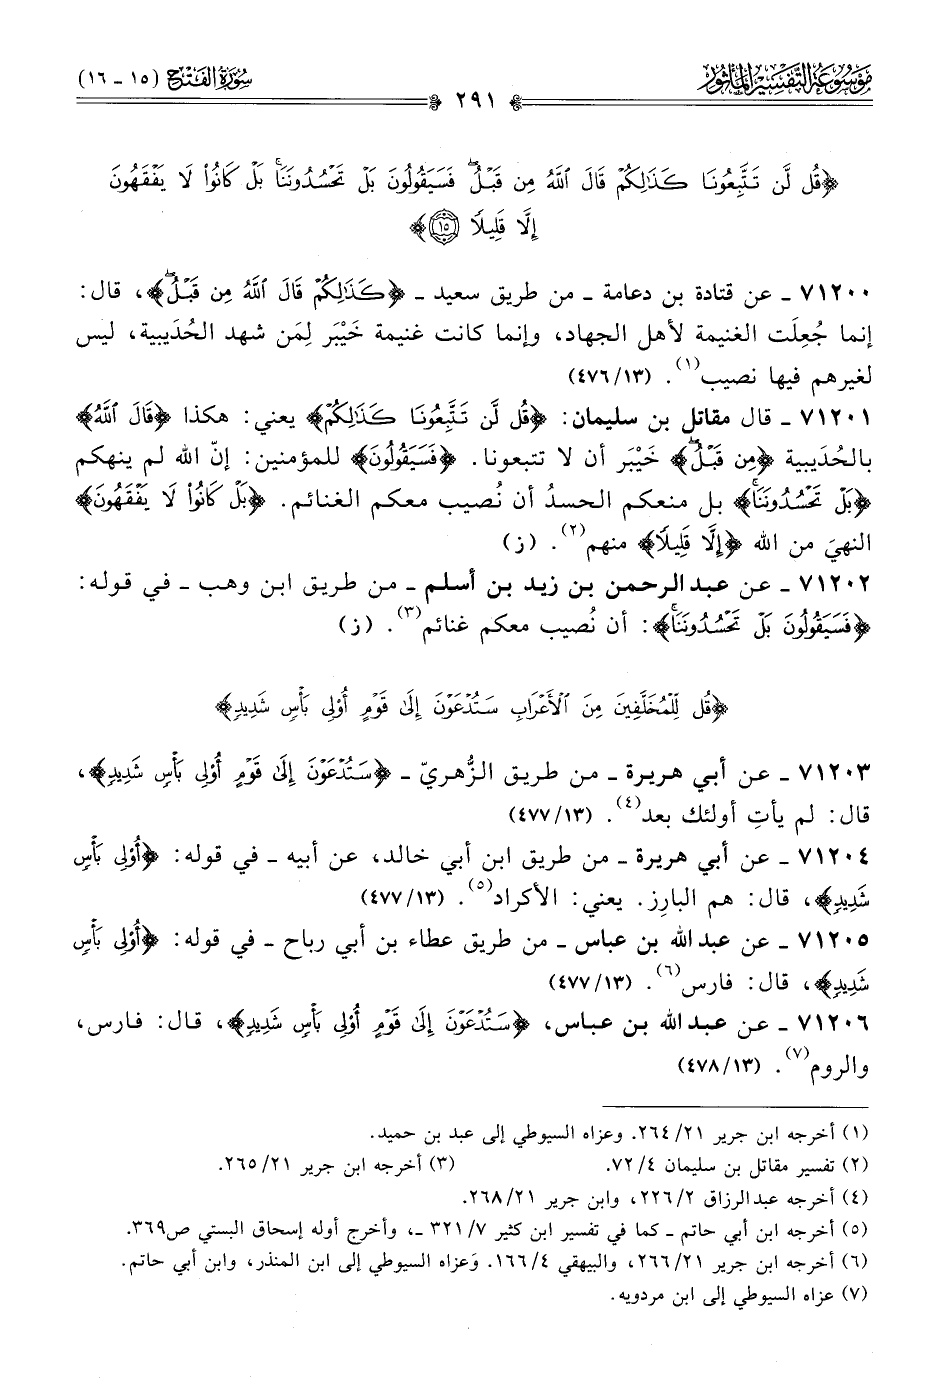 موسوعة التفسير المأثور
سورة الفتح (١٥ - ١٦)
٢٩١
﴿قُل لَّن تَتَّبِعُونَا كَذَٰلِكُمْ قَالَ ٱللَّهُ مِن قَبْلُ ۖ فَسَيَقُولُونَ بَلْ تَحْسُدُونَنَا ۚ بَلْ كَانُوا۟ لَا يَفْقَهُونَ
إِلَّا قَلِيلًا ١٥﴾
٧١٢٠٠ - عن قتادة بن دعامة - من طريق سعيد - ﴿كَذَٰلِكُمْ قَالَ ٱللَّهُ مِن قَبْلُ ۖ﴾، قال:
إنما جُعِلَت الغنيمة لأهل الجهاد، وإنما كانت غنيمة خَيْبَر لِمَن شهد الحُدَيبية، ليس
لغيرهم فيها نصيب(١). (٤٧٦/١٣)
٧١٢٠١ - قال مقاتل بن سليمان: ﴿قُل لَّن تَتَّبِعُونَا كَذَٰلِكُمْ﴾ يعني: هكذا ﴿قَالَ ٱللَّهُ﴾
بالحُدَيبية ﴿مِن قَبْلُ ۖ﴾ خَيْبَر أن لا تتبعونا. ﴿فَسَيَقُولُونَ﴾ للمؤمنين: إنّ الله لم ينهكم
﴿بَلْ تَحْسُدُونَنَا ۚ﴾ بل منعكم الحسدُ أن نُصيب معكم الغنائم. ﴿بَلْ كَانُوا۟ لَا يَفْقَهُونَ﴾
النهيَ من الله ﴿إِلَّا قَلِيلًا﴾ منهم(٢). (ز)
٧١٢٠٢ - عن عبدالرحمن بن زيد بن أسلم - من طريق ابن وهب - في قوله:
﴿فَسَيَقُولُونَ بَلْ تَحْسُدُونَنَا ۚ﴾: أن نُصيب معكم غنائم(٣). (ز)
﴿قُل لِّلْمُخَلَّفِينَ مِنَ ٱلْأَعْرَابِ سَتُدْعَوْنَ إِلَىٰ قَوْمٍ أُو۟لِى بَأْسٍ شَدِيدٍ﴾
٧١٢٠٣ - عن أبي هريرة - من طريق الزُّهريّ - ﴿سَتُدْعَوْنَ إِلَىٰ قَوْمٍ أُو۟لِى بَأْسٍ شَدِيدٍ﴾،
قال: لم يأتِ أولئك بعد(٤). (٤٧٧/١٣)
٧١٢٠٤ - عن أبي هريرة - من طريق ابن أبي خالد، عن أبيه - في قوله: ﴿أُو۟لِى بَأْسٍ
شَدِيدٍ﴾، قال: هم البارِز. يعني: الأكراد(٥). (٤٧٧/١٣)
٧١٢٠٥ - عن عبدالله بن عباس - من طريق عطاء بن أبي رباح - في قوله: ﴿أُو۟لِى بَأْسٍ
شَدِيدٍ﴾، قال: فارس(٦). (٤٧٧/١٣)
٧١٢٠٦ - عن عبدالله بن عباس، ﴿سَتُدْعَوْنَ إِلَىٰ قَوْمٍ أُو۟لِى بَأْسٍ شَدِيدٍ﴾، قال: فارس،
والروم(٧). (٤٧٨/١٣)
(١) أخرجه ابن جرير ٢١/ ٢٦٤. وعزاه السيوطي إلى عبد بن حميد.
(٢) تفسير مقاتل بن سليمان ٤/ ٧٢. (٣) أخرجه ابن جرير ٢١/ ٢٦٥.
(٤) أخرجه عبدالرزاق ٢/ ٢٢٦، وابن جرير ٢١/ ٢٦٨.
(٥) أخرجه ابن أبي حاتم - كما في تفسير ابن كثير ٧/ ٣٢١ -، وأخرج أوله إسحاق البستي ص٣٦٩.
(٦) أخرجه ابن جرير ٢١/ ٢٦٦، والبيهقي ٤/ ١٦٦. وَعزاه السيوطي إلى ابن المنذر، وابن أبي حاتم.
(٧) عزاه السيوطي إلى ابن مردويه.